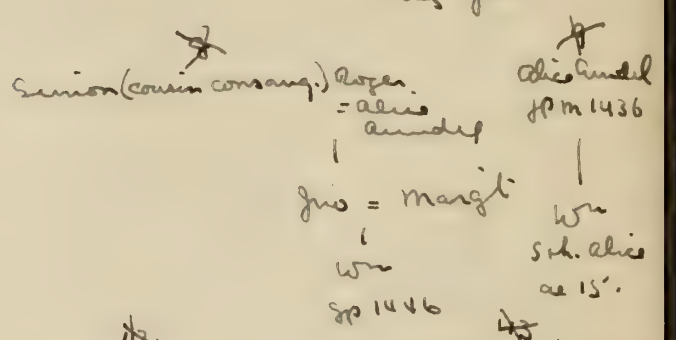 Simon (cousin consang.) Roger
= alice
arundel
Jno = Margt
Wm
sp 1446
Alice Arundel
IPM 1436
Wm
s & h. Alice
ae 15.